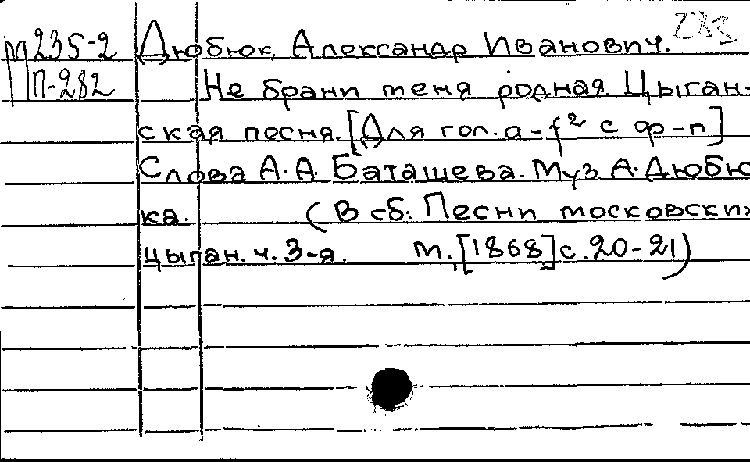 М 235-2 Дюбюк, Александр Иванович.
П-282 Не брани меня родная. Цыган-
ская песня. [Для гол. a-f² с ф-п]
Слова А.А. Баташева. Муз А. Дюбю
ка. (В сб: Песни московских
цыган. ч. 3-я. М., [1868] с. 20-21)